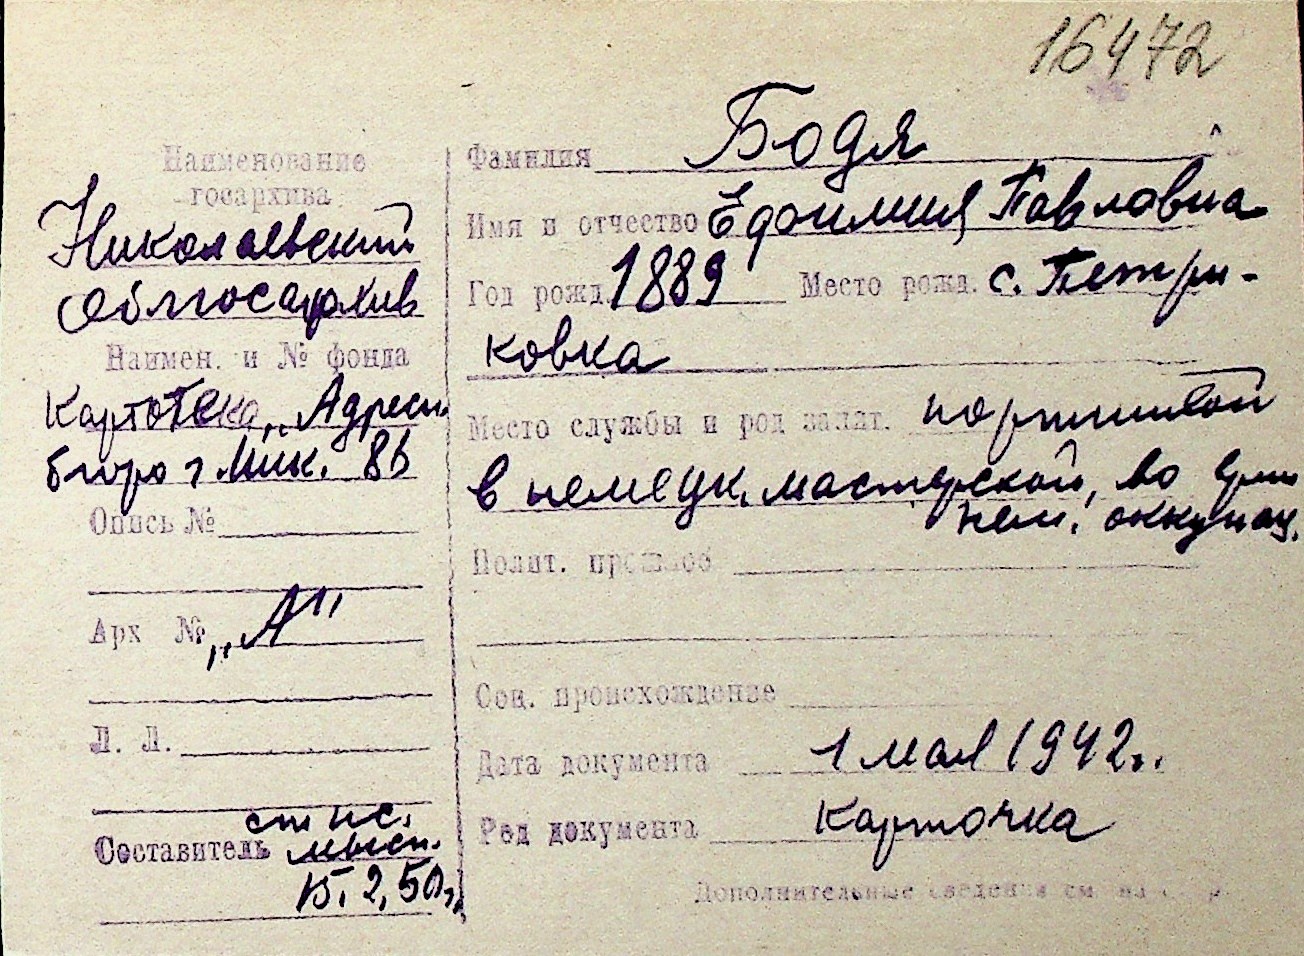 16472
Наименование
госархива
Николаевский
Облгосархив
Наимен. и № фонда
Картотека „Адресн.
бюро г. Ник. 86
Опись №
Арх № „А"
Л. Л.
Составитель ст нс.
15. 2, 50 г.
Фамилия Бодя
Имя и отчество Ефдимия Павловна
Год рожд. 1889 Место рожд. с. Петри-
ковка
Место службы и род занят. портнихой
в немецк. мастерской, во врем
нем. оккупац.
Полит. прошлое
Соц. происхождение
Дата документа 1 мая 1942 г.
Род документа Карточка
Дополнительные сведения см на